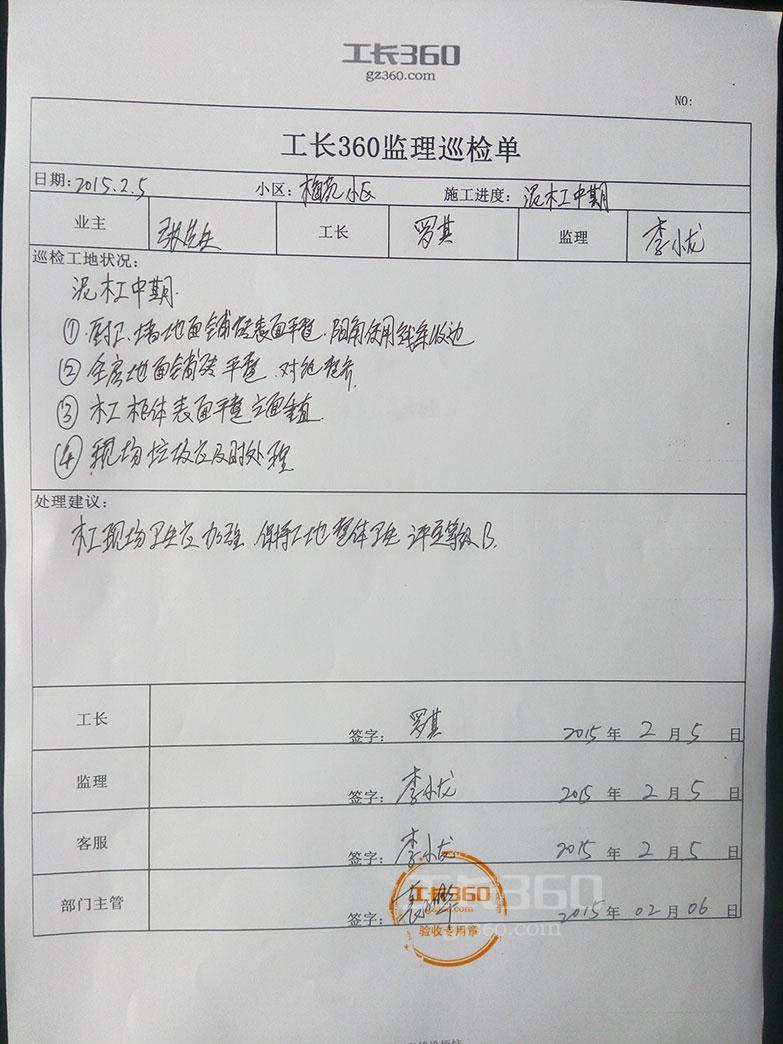 工长360
gz360.com
NO:
工长360监理巡检单
日期:2015.2.5 小区:梅苑小区 施工进度:泥木工中期
业主 工长 罗其 监理 李小龙
巡检工地状况:
泥木工中期.
①厨卫、墙地面铺砖表面平整.阳角使用线条收边
②全房地面铺砖平整.对缝整齐.
③木工柜体表面平整立面垂直.
④现场垃圾应及时处理
处理建议:
木工现场卫生应加强.保持工地整体卫生.评定等级B.
工长 签字: 罗其 2015年2月5日
监理 签字: 李小龙 2015年2月5日
客服 签字: 李小龙 2015年2月5日
部门主管 签字: 2015年02月06日
工长360
gz360.com
验收专用章